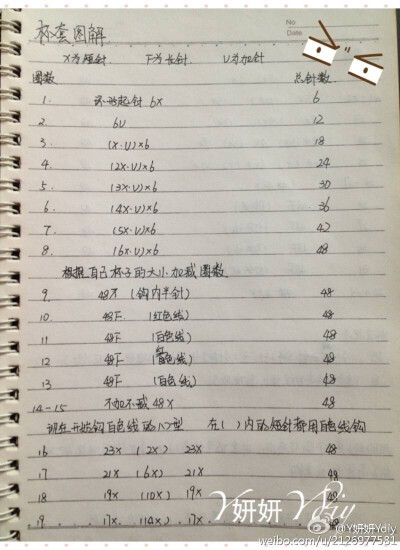 No
Date
杯套图解
X为短针 F为长针 V为加针
圈数 总针数
1. 环形起针 6X 6
2 6V 12
3. (X·V)×6 18
4. (2X·V)×6 24
5. (3X·V)×6 30
6. (4X·V)×6 36
7. (5X·V)×6 42
8. (6X·V)×6 48
根据自己杯子的大小加减圈数
9. 48X (钩内半针) 48
10. 48F (红色线) 48
11 48F (白色线) 48
12 48F (红色线) 48
13 48F (白色线) 48
14-15 不加不减 48X 48
现在开始钩白色线的八型 在( )内的短针都用白色线钩
16 23X (2X) 23X 48
17 21X (6X) 21X 48
18 19X (10X) 19X 48
19 17X (14X) 17X 48
Y妍妍Ydiy
@Y妍妍Ydiy
weibo.com/u/2125977531